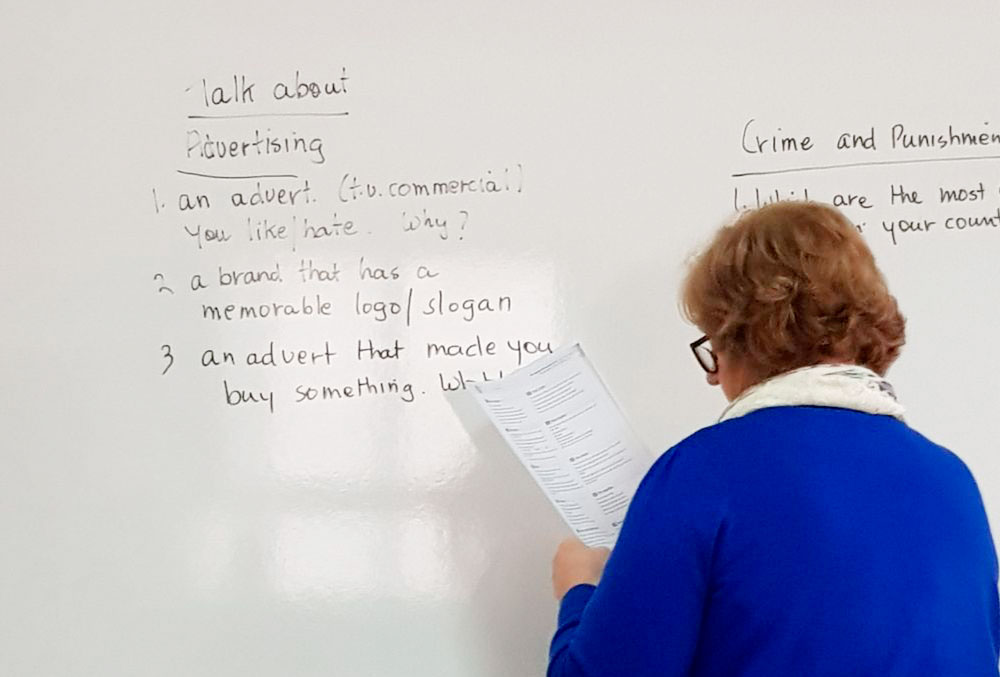 Talk about
Advertising
1. an advert. (t.v. commercial)
you like/hate. Why?
2 a brand that has a
memorable logo/slogan
3 an advert that made you
buy something.
Crime and Punishmen
1. Which are the most
your count